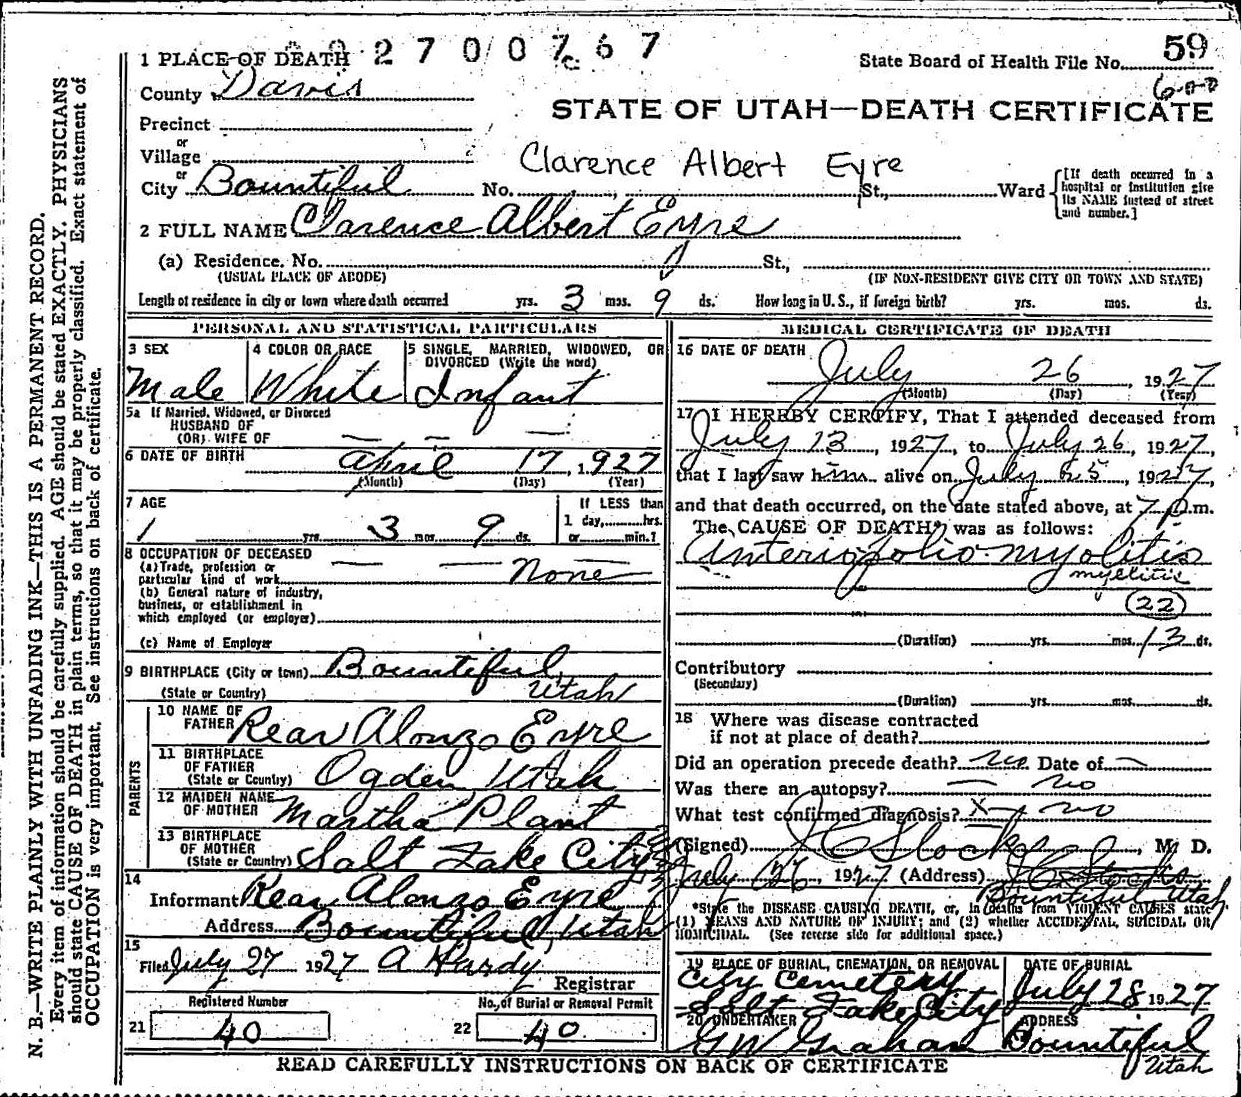 N. B.—WRITE PLAINLY WITH UNFADING INK—THIS IS A PERMANENT RECORD.
Every item of information should be carefully supplied. AGE should be stated EXACTLY. PHYSICIANS
should state CAUSE OF DEATH in plain terms, so that it may be properly classified. Exact statement of
OCCUPATION is very important. See instructions on back of certificate.
2 7 0 0 7 6 7
1 PLACE OF DEATH
State Board of Health File No. 59
County Davis
STATE OF UTAH—DEATH CERTIFICATE
Precinct
or
Village
Clarence Albert Eyre
or
City Bountiful No. St., Ward
[If death occurred in a
hospital or institution give
its NAME instead of street
and number.]
2 FULL NAME Clarence Albert Eyre
(a) Residence. No. St.,
(USUAL PLACE OF ABODE) (IF NON-RESIDENT GIVE CITY OR TOWN AND STATE)
Length of residence in city or town where death occurred yrs. 3 mos. 9 ds. How long in U. S., if foreign birth? yrs. mos. ds.
PERSONAL AND STATISTICAL PARTICULARS
3 SEX
Male
4 COLOR OR RACE
White
5 SINGLE, MARRIED, WIDOWED, OR
DIVORCED (Write the word)
Infant
5a If Married, Widowed, or Divorced
HUSBAND OF
(OR) WIFE OF — — —
6 DATE OF BIRTH April 17, 1927
(Month) (Day) (Year)
7 AGE
If LESS than
1 day, hrs.
or min.?
yrs. 3 mos. 9 ds.
8 OCCUPATION OF DECEASED
(a) Trade, profession or
particular kind of work None
(b) General nature of industry,
business, or establishment in
which employed (or employer)
(c) Name of Employer
9 BIRTHPLACE (City or town) Bountiful,
(State or Country) Utah
PARENTS
10 NAME OF
FATHER Rear Alonzo Eyre
11 BIRTHPLACE
OF FATHER
(State or Country) Ogden Utah
12 MAIDEN NAME
OF MOTHER Martha Plant
13 BIRTHPLACE
OF MOTHER
(State or Country) Salt Lake City
14
Informant Rear Alonzo Eyre
Address Bountiful, Utah
15
Filed July 27 1927 A Hardy
Registrar
Registered Number
21 40
No. of Burial or Removal Permit
22 40
MEDICAL CERTIFICATE OF DEATH
16 DATE OF DEATH
July 26, 1927
(Month) (Day) (Year)
17 I HEREBY CERTIFY, That I attended deceased from
July 13, 1927, to July 26, 1927,
that I last saw him alive on July 25, 1927,
and that death occurred, on the date stated above, at 7 p.m.
The CAUSE OF DEATH* was as follows:
Anterio polio myolitis
myelitis
22
(Duration) yrs. mos. 13 ds.
Contributory
(Secondary)
(Duration) yrs. mos. ds.
18 Where was disease contracted
if not at place of death?
Did an operation precede death? no Date of —
Was there an autopsy? — no
What test confirmed diagnosis? X — no
(Signed) J C Stocks, M. D.
July 26, 1927 (Address) J C Stocks
Bountiful Utah
*State the DISEASE CAUSING DEATH, or, in deaths from VIOLENT CAUSES state
(1) MEANS AND NATURE OF INJURY; and (2) whether ACCIDENTAL, SUICIDAL OR
HOMICIDAL. (See reverse side for additional space.)
19 PLACE OF BURIAL, CREMATION, OR REMOVAL
City Cemetery
Salt Lake City
DATE OF BURIAL
July 28 1927
20 UNDERTAKER
G W Graham
ADDRESS
Bountiful
Utah
READ CAREFULLY INSTRUCTIONS ON BACK OF CERTIFICATE